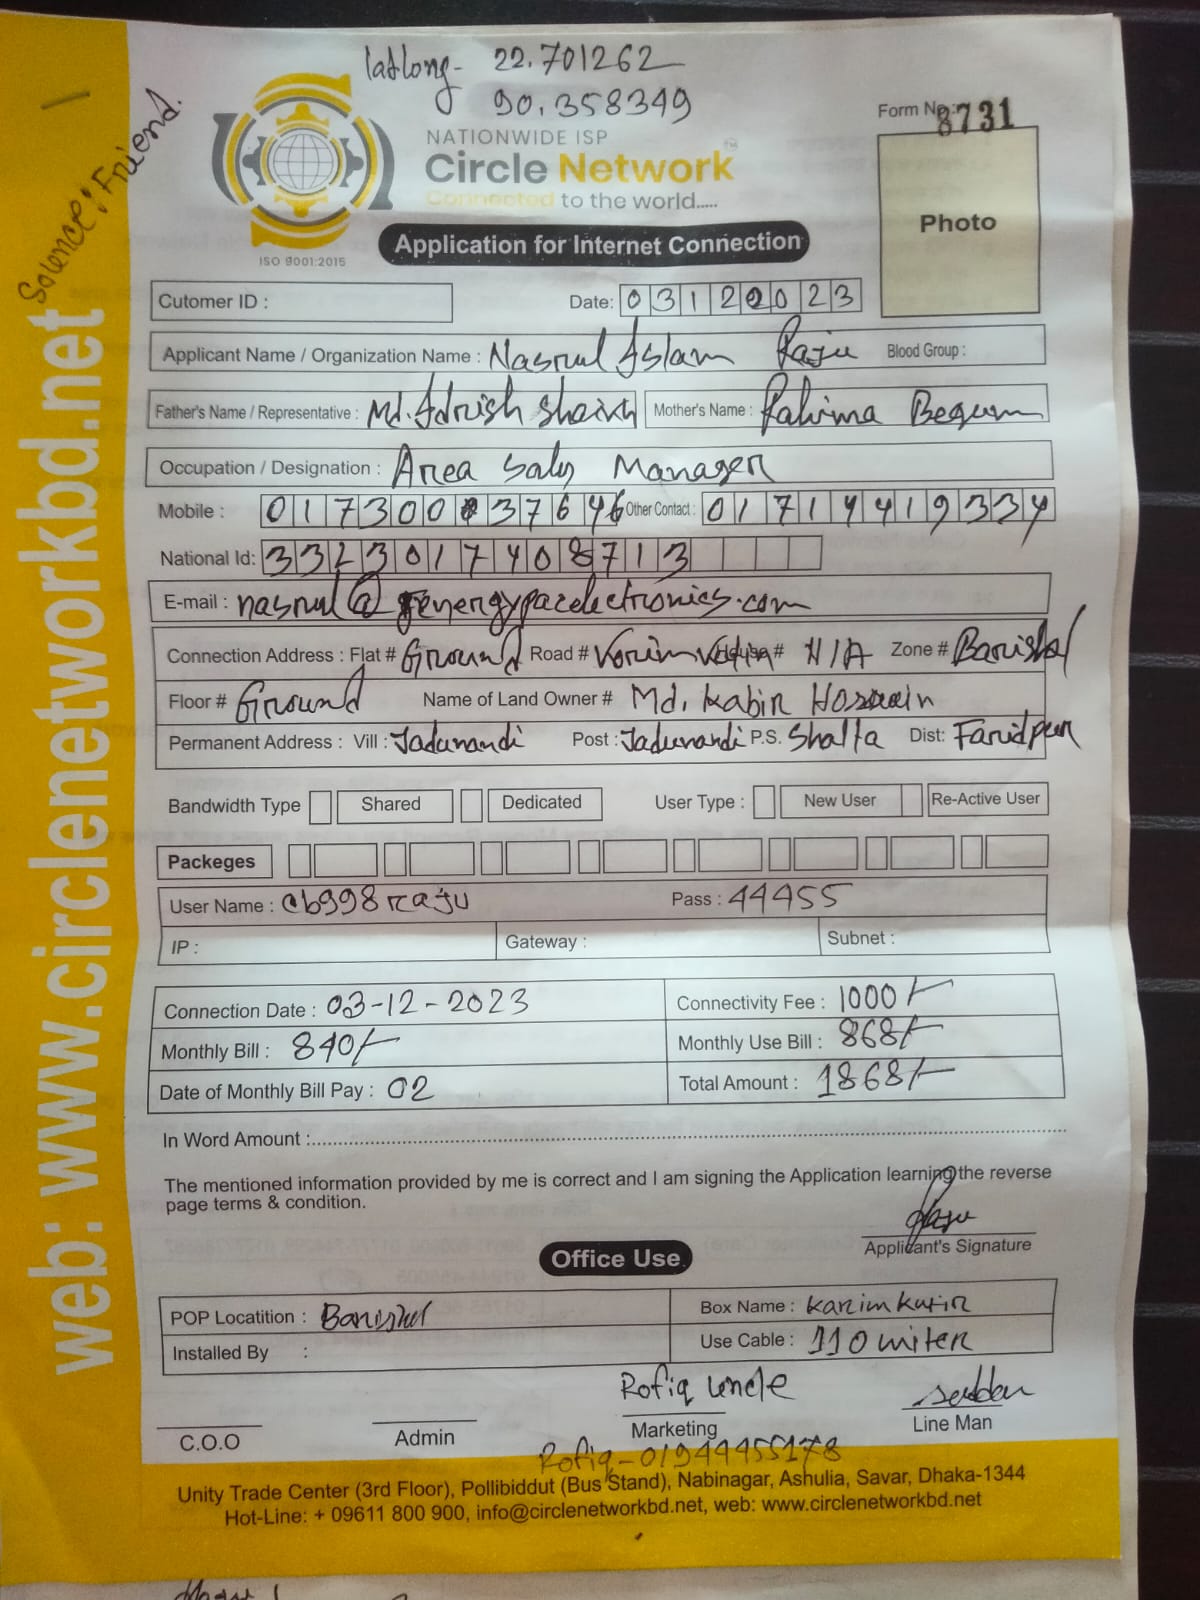 latlong- 22.701262
90.358349
Source: Friend.
Form No: 8731
NATIONWIDE ISP
Circle Network™
Connected to the world.....
ISO 9001:2015
Photo
Application for Internet Connection
Cutomer ID :
Date: 03122023
Applicant Name / Organization Name : Nasrul Islam Raju Blood Group :
Father's Name / Representative : Md. Idrish Shaikh Mother's Name : Rahima Begum
Occupation / Designation : Area Sales Manager
Mobile : 017300 37646 Other Contact : 01714419334
National Id: 3323017408713
E-mail : nasrul@energypacelectronics.com
Connection Address : Flat # Ground Road # House # N/A Zone # Barishal
Floor # Ground Name of Land Owner # Md. Kabir Hossain
Permanent Address : Vill : Jadunandi Post : Jadunandi P.S. Shalta Dist: Faridpur
Bandwidth Type Shared Dedicated User Type : New User Re-Active User
Packeges
User Name : cb998raju Pass : 44455
IP : Gateway : Subnet :
Connection Date : 03-12-2023 Connectivity Fee : 1000/-
Monthly Bill : 840/- Monthly Use Bill : 868/-
Date of Monthly Bill Pay : 02 Total Amount : 1868/-
In Word Amount :
The mentioned information provided by me is correct and I am signing the Application learning the reverse
page terms & condition.
Raju
Applicant's Signature
Office Use
POP Locatition : Barishal Box Name : karimkutir
Installed By : Use Cable : 110 miter
Rofiq uncle
C.O.O Admin Marketing Line Man
Rofiq-01944455178
Unity Trade Center (3rd Floor), Pollibiddut (Bus Stand), Nabinagar, Ashulia, Savar, Dhaka-1344
Hot-Line: + 09611 800 900, info@circlenetworkbd.net, web: www.circlenetworkbd.net
web: www.circlenetworkbd.net